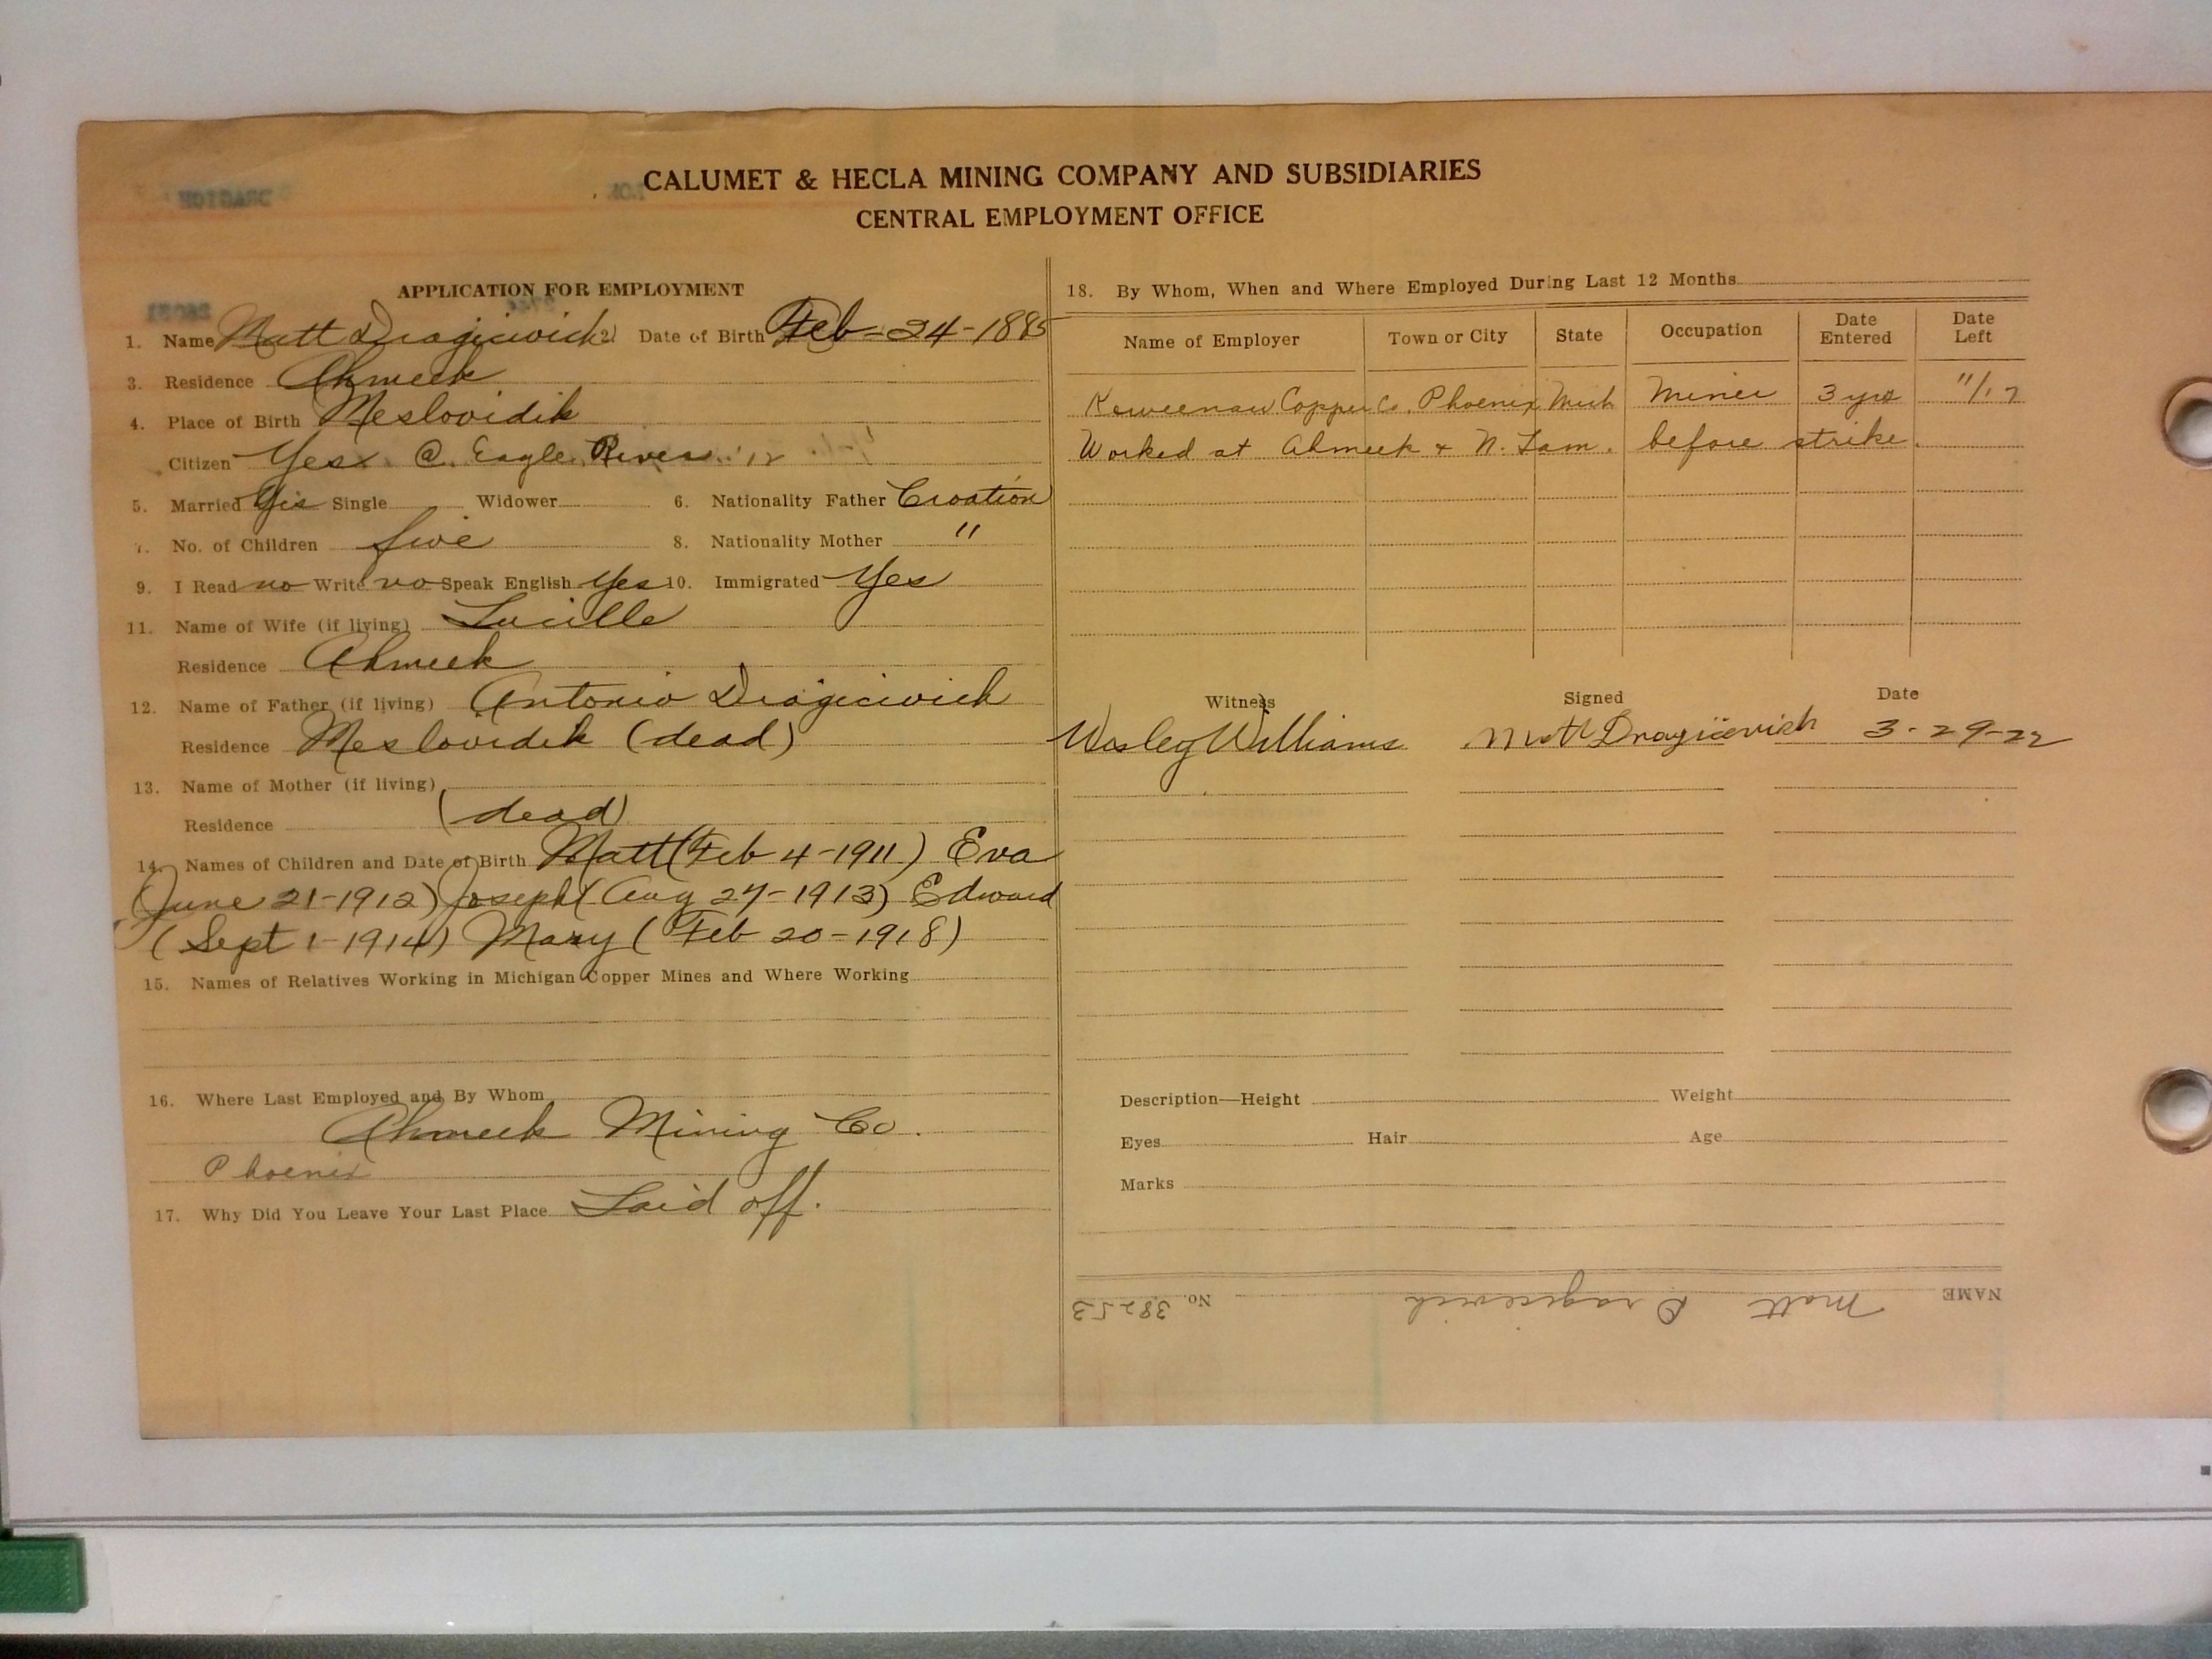 CALUMET & HECLA MINING COMPANY AND SUBSIDIARIES
CENTRAL EMPLOYMENT OFFICE
APPLICATION FOR EMPLOYMENT
1. Name Matt Dragicivich 2. Date of Birth Feb-24-1885
3. Residence Ahmeek
4. Place of Birth Meslovidik
Citizen Yes @ Eagle River '12
5. Married Yes Single Widower 6. Nationality Father Croation
7. No. of Children five 8. Nationality Mother "
9. I Read no Write no Speak English Yes 10. Immigrated Yes
11. Name of Wife (if living) Lucille
Residence Ahmeek
12. Name of Father (if living) Antonio Dragicivich
Residence Meslovidik (dead)
13. Name of Mother (if living)
Residence (dead)
14. Names of Children and Date of Birth Matt (Feb 4-1911) Eva
(June 21-1912) Joseph (Aug 27-1913) Edward
(Sept 1-1914) Mary (Feb 20-1918)
15. Names of Relatives Working in Michigan Copper Mines and Where Working
16. Where Last Employed and By Whom
Ahmeek Mining Co.
Phoenix
17. Why Did You Leave Your Last Place Laid off.
18. By Whom, When and Where Employed During Last 12 Months
Name of Employer Town or City State Occupation Date Entered Date Left
Keweenaw Copper Co. Phoenix Mich Miner 3 yrs 11/17
Worked at Ahmeek & N. Lam. before strike.
Witness Signed Date
Wesley Williams Matt Dragicevich 3-29-22
Description—Height Weight
Eyes Hair Age
Marks
NAME Matt Dragicevich No. 38253